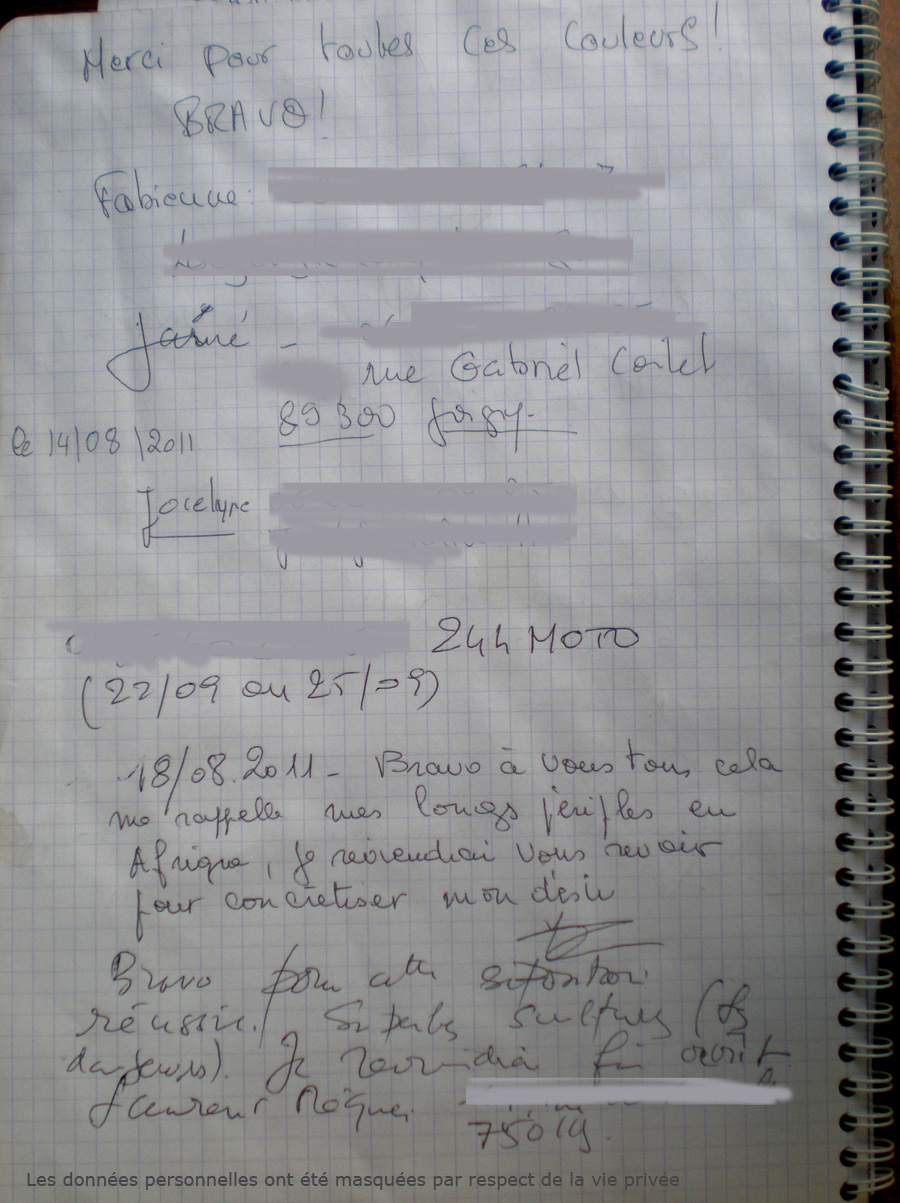 Merci pour toutes ces couleurs !
BRAVO !
Fabienne :
Jaimé -
rue Gabriel Cortel
89300 Joigny.
le 14/08/2011
Jocelyne
24h MOTO
(22/09 au 25/09)
18/08.2011 - Bravo à vous tous cela
me rappelle mes longs périples en
Afrique, je reviendrai vous revoir
pour concrétiser mon désir
Bravo pour cette exposition
réussie. Superbes sculptures (les
danseurs). Je reviendrai fin août
Laurent
75019.
Les données personnelles ont été masquées par respect de la vie privée